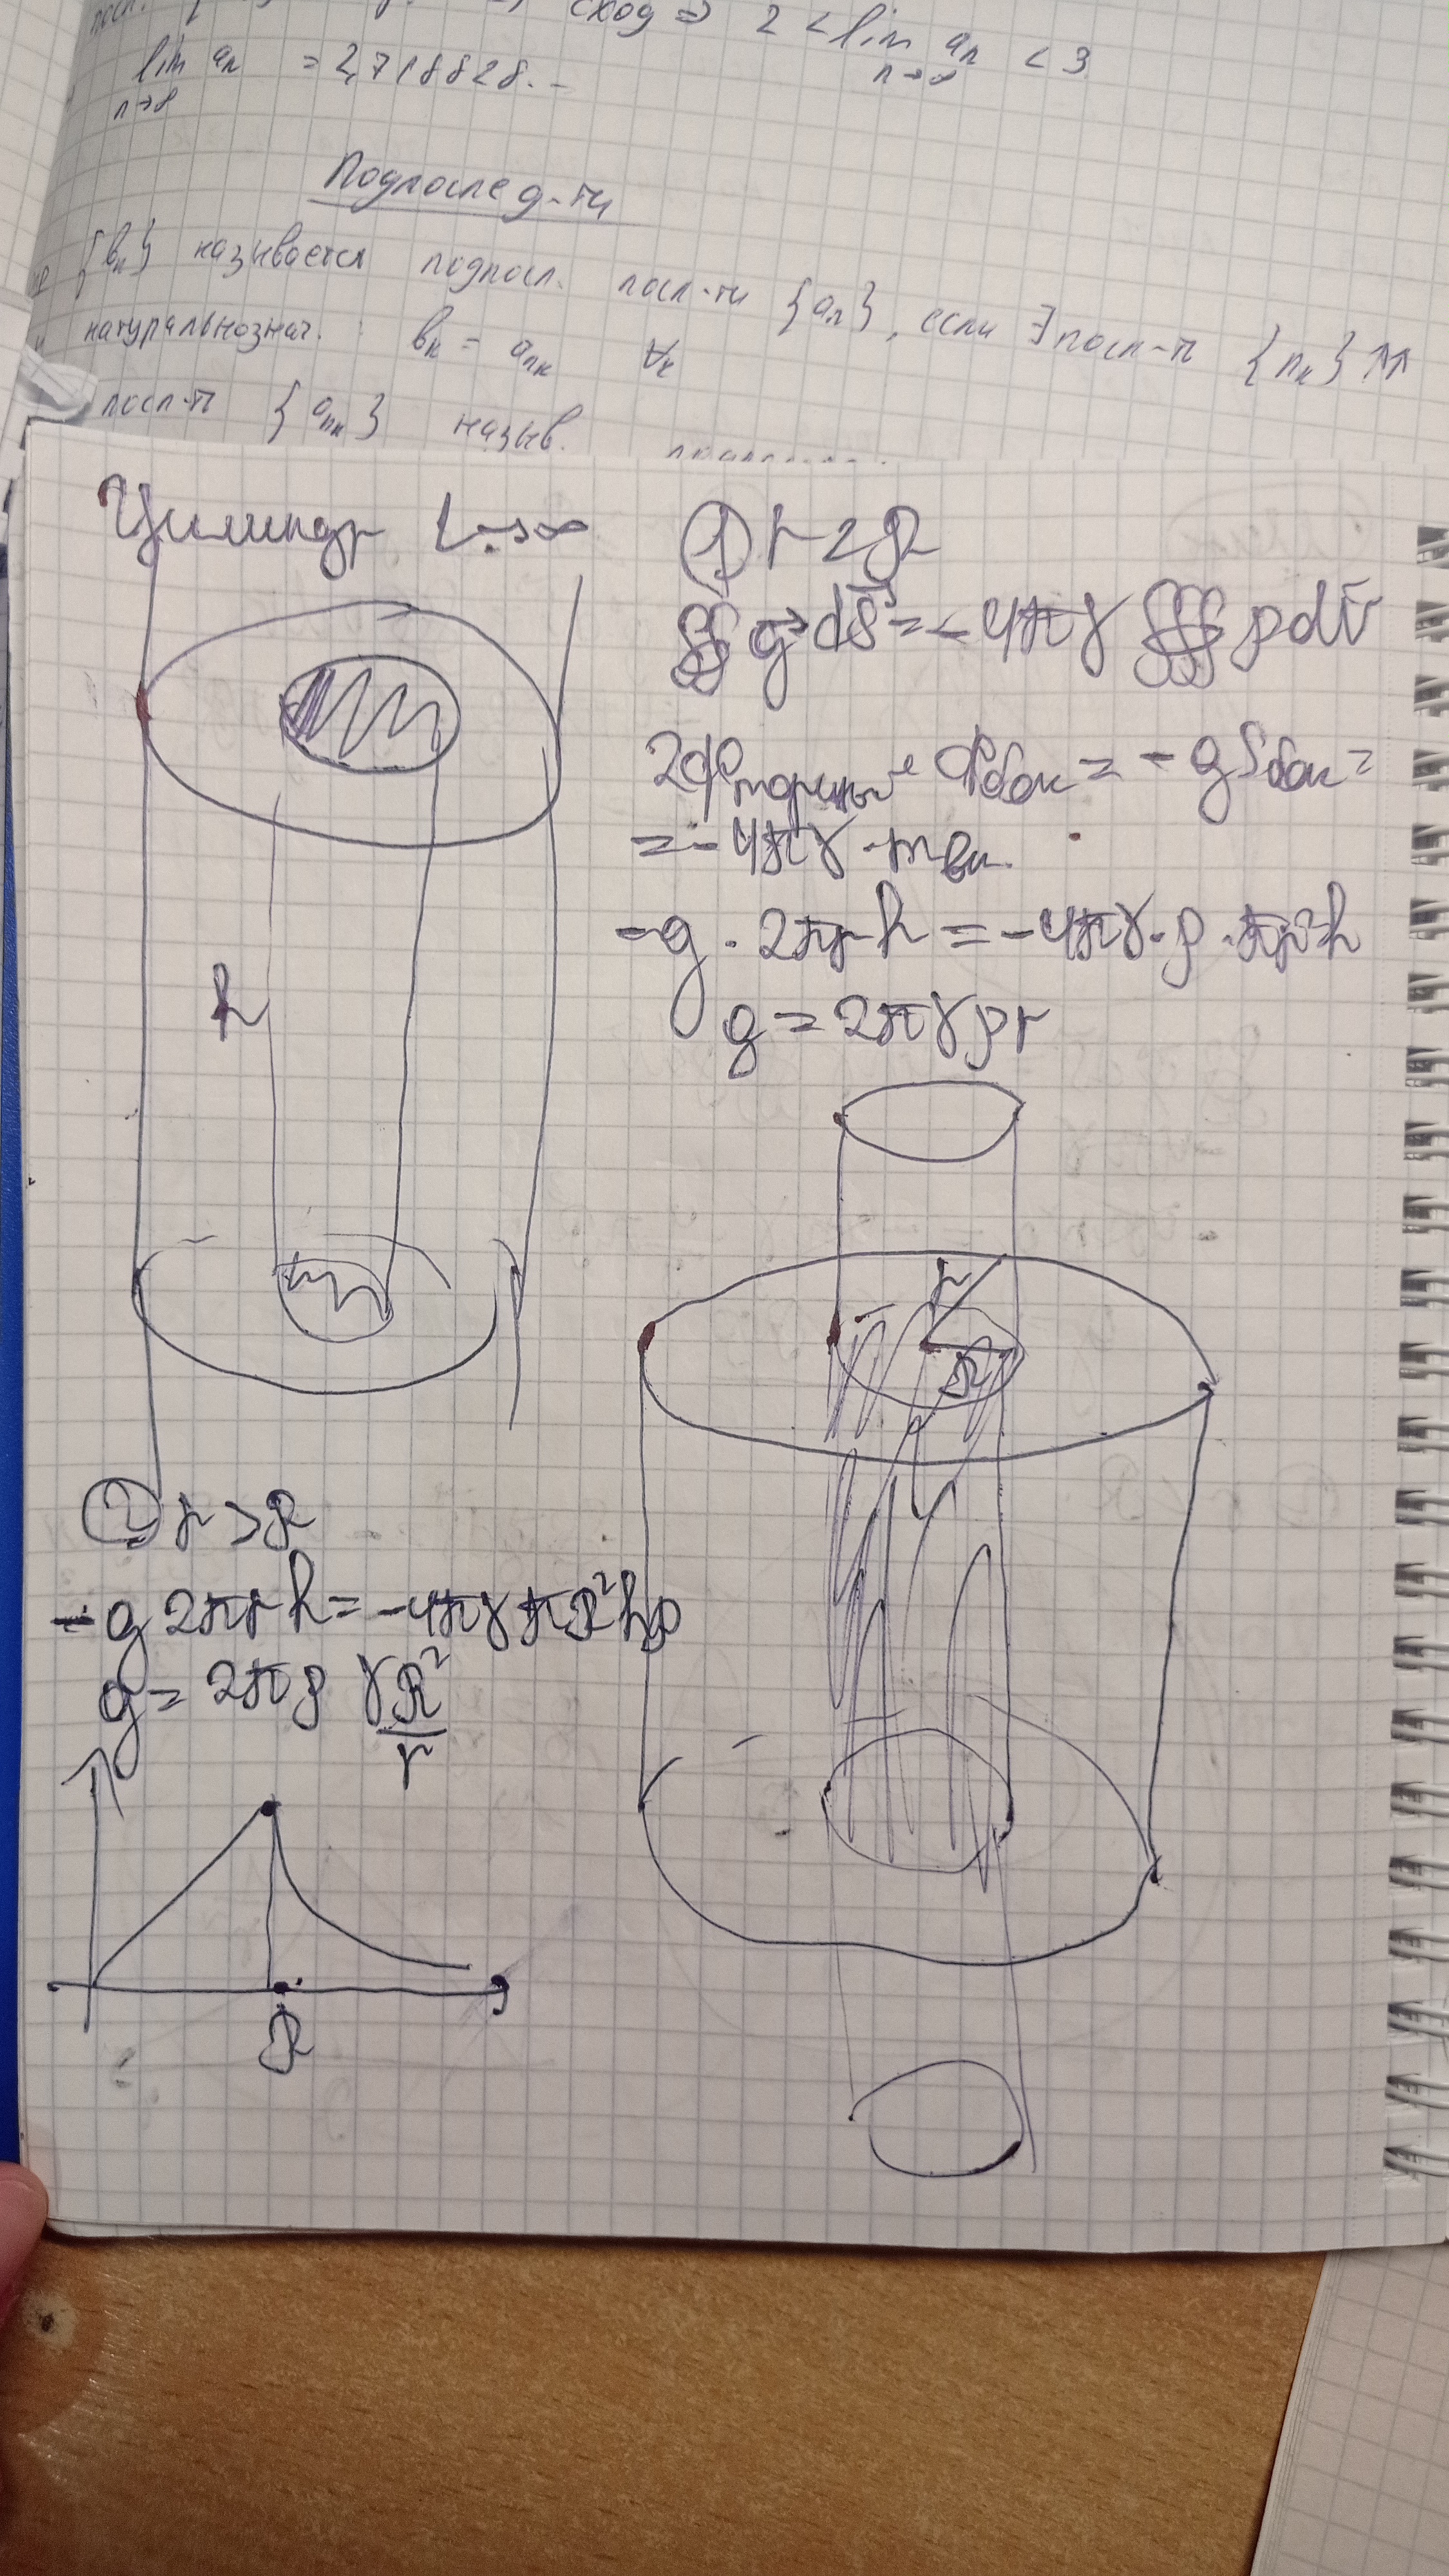 сход => 2 < lim aₙ < 3
n→∞
lim aₙ = 2,718828...
n→∞
Подпослед-ти
{bₖ} называется подпосл. посл-ти {aₙ}, если ∃ посл-ть {nₖ} ↑↑
натуральнознач. : bₖ = aₙₖ ∀ₖ
посл-ть {aₙₖ} назыв.
Цилиндр L→∞
h
① r < R
∯ g⃗ dS⃗ = -4πγ ∰ ρdV
2Фторцы + Фбок = -gSбок =
= -4πγ · mвн.
-g · 2πrh = -4πγ · ρ · πr²h
g = 2πγρr
r
R
② r > R
-g 2πrh = -4πγ πR²hρ
g = 2πρ γ R²/r
R